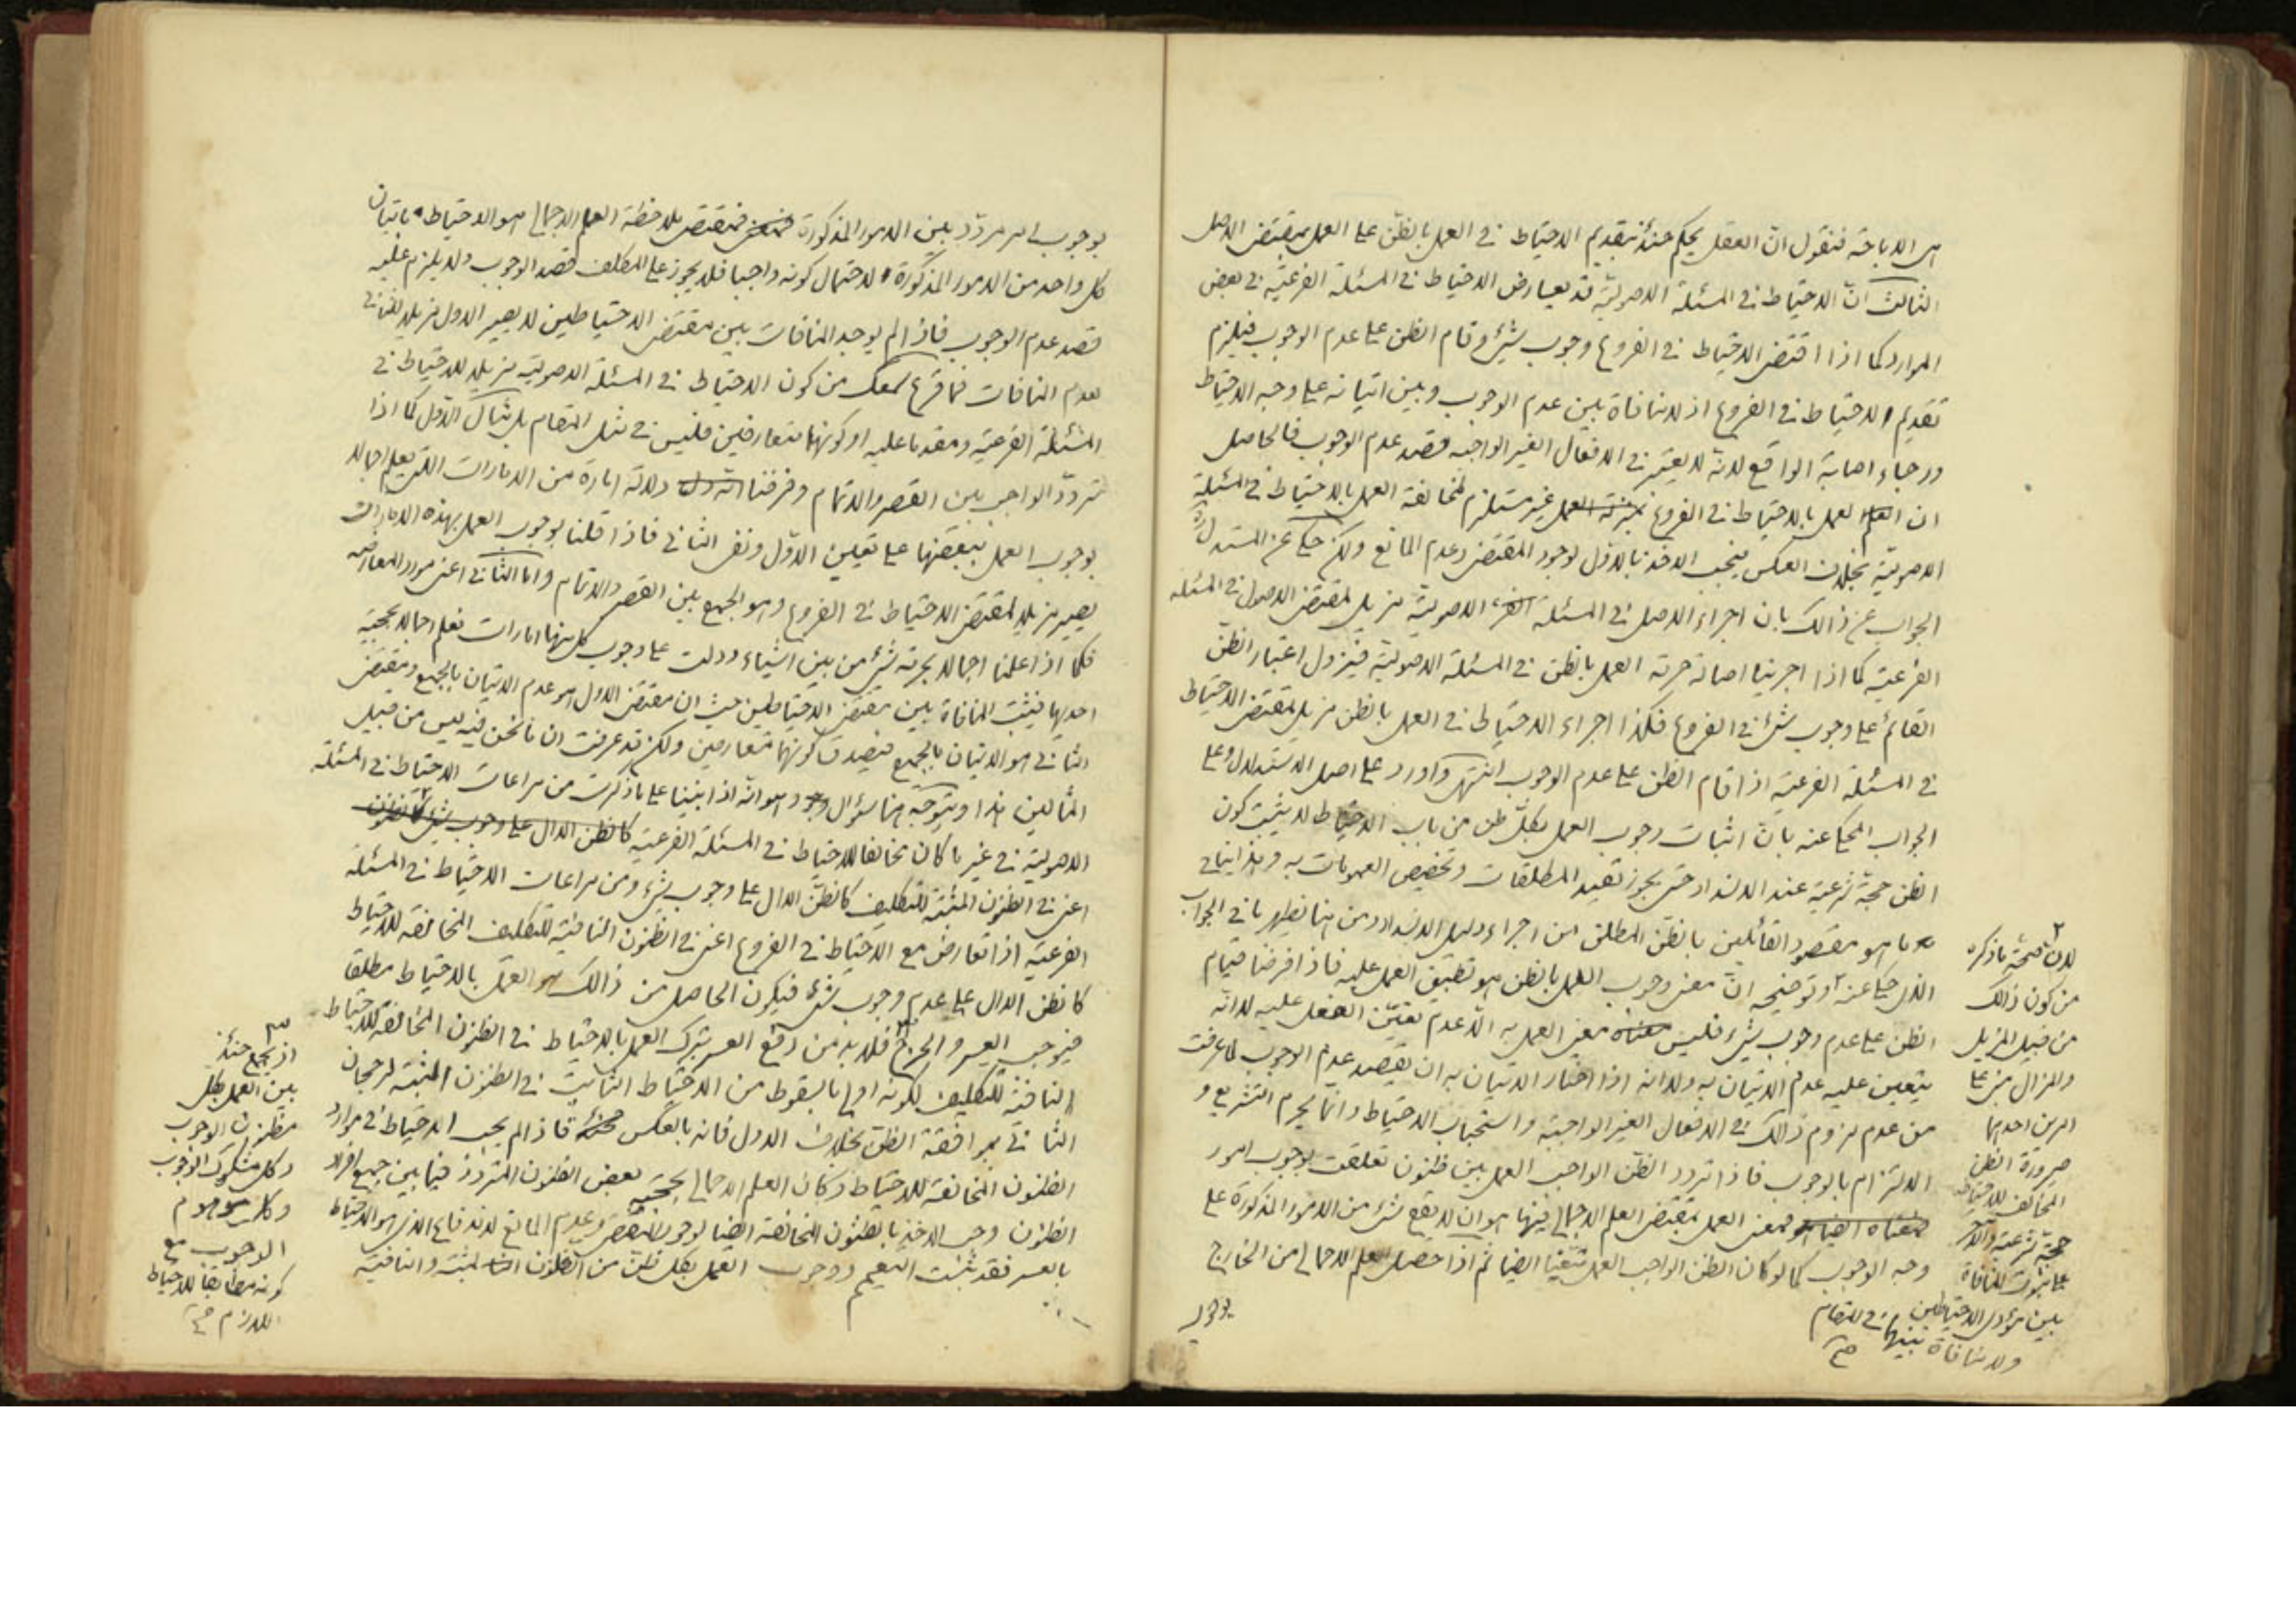 هى الاباحة فنقول انّ العقل يحكم حينئذ بتقديم الاحتياط فى العمل بالظنّ على العمل بمقتضى الاصل
الثالث انّ الاحتياط فى المسئلة الاصوليّة قد يعارض الاحتياط فى المسئلة الفرعيّة فى بعض
الموارد كما اذا اقتضى الاحتياط فى الفروع وجوب شئ وقام الظن على عدم الوجوب فيلزم
تقديم الاحتياط فى الفروع اذ لا منافاة بين عدم الوجوب وبين اتيانه على وجه الاحتياط
ورجاء اصابة الواقع لانّه لا يعتبر فى الافعال الغير الواجبه قصد عدم الوجوب فالحاصل
ان العمل بالاحتياط فى الفروع غير مستلزم لمخالفة العمل بالاحتياط فى المسئلة
الاصوليّة بخلاف العكس فيجب الاخذ بالاول لوجود المقتضى وعدم المانع ولكن حكى عن المستدل
الجواب عن ذالك بان اجراء الاصل فى المسئلة الاصوليّة مزيل لمقتضى الاصول فى المسئله
الفرعيّة كما اذا اجرينا اصالة حرمة العمل بالظن فى المسئلة الاصوليّة فيزول اعتبار الظنّ
القائم على وجوب شئ فى الفروع فكذا اجراء الاحتياط فى العمل بالظن مزيل لمقتضى الاحتياط
فى المسئلة الفرعيّة اذا قام الظن على عدم الوجوب انتهى واورد على اصل الاستدلال وعلى
الجواب المحكى عنه بانّ اثبات وجوب العمل بكلّ ظن من باب الاحتياط لا يثبت كون
الظن حجة شرعية عند الانسداد حتى يجوز تقييد المطلقات وتخصيص العمومات به وهذا ينافى
ما هو مقصود القائلين بالظنّ المطلق من اجراء دليل الانسداد ومن هنا يظهر ما فى الجواب
الذى حكى عنه وتوضيحه انّ معنى وجوب العمل بالظن هو تطبيق العمل عليه فاذا فرضنا قيام
الظن على عدم وجوب شئ فليس معنى العمل به الّا عدم تعيّن الفعل عليه لا انّه
يتعين عليه عدم الاتيان به ولا انه اذا اختار الاتيان به ان يقصد عدم الوجوب لما عرفت
من عدم لزوم ذالك فى الافعال الغير الواجبة واستحباب الاحتياط وانما يحرم التشريع و
الالتزام بالوجوب فاذا تردد الظنّ الواجب العمل بين ظنون تعلقت بوجوب امور
فمعنى العمل بمقتضى العلم الاجمالى فيها هو ان لا يقع شئ من الامور المذكورة على
وجه الوجوب كما لو كان الظن الواجب العمل متعيّنا ايضا ثم اذا حصل العلم الاجمالى من الخارج
لانّ صحّة ما ذكره
من كون ذالك
من قبيل المزيل
والمزال مبنى على
امرين احدهما
صيرورة الظن
المخالف للاحتياط
حجّة شرعية والآخر
على ثبوت المنافاة
بين مؤدى الاحتياطين فى المقام
ولا منافاة بينهما
صح
بوجوب امر مردّد بين الامور المذكورة فمقتضى ملاحظة العلم الاجمالى هو الاحتياط باتيان
كل واحد من الامور المذكورة لاحتمال كونه واجبا فلا يجوز على المكلف قصد الوجوب ولا يلزم عليه
قصد عدم الوجوب فاذا لم يوجد المنافات بين مقتضى الاحتياطين لا يصير الاول مزيلا للثانى
لعدم المنافات فما قرع سمعك من كون الاحتياط فى المسئلة الاصوليّة مزيلا للاحتياط فى
المسئلة الفرعيّة ومقدما عليه او كونهما متعارضين فليس فى مثل المقام بل مثال الاول كما اذا
تردد الواجب بين القصر والاتمام وفرضنا دلالة امارة من الامارات التى يعلم اجمالا
بوجوب العمل ببعضها على تعيين الاوّل ونفى الثانى فاذا قلنا بوجوب العمل بهذه الامارات
يصير مزيلا لمقتضى الاحتياط فى الفروع وهو الجمع بين القصر والاتمام واما الثانى اعنى مورد المعارضه
فكما اذا علمنا اجمالا بحرمة شئ من بين اشياء ودلت على وجوب كل منها امارات نعلم اجمالا بحجيّة
احديها فيثبت المنافاة بين مقتضى الاحتياطين حيث ان مقتضى الاول هو عدم الاتيان بالجميع ومقتضى
الثانى هو الاتيان بالجميع فيصدق كونهما متعارضين ولكن قد عرفت ان ما نحن فيه ليس من قبيل
المثالين هذا ويتوجّه هنا سؤال وهو انه اذا بنينا على ما ذكرت من مراعات الاحتياط فى المسئلة
الاصوليّة فى غير ما كان مخالفا للاحتياط فى المسئلة الفرعيّة كالظن الدال على وجوب شئ
اعنى فى الظنون المثبتة للتكليف كالظن الدال على وجوب شئ ومن مراعات الاحتياط فى المسئلة
الفرعيّة اذا تعارض مع الاحتياط فى الفروع اعنى فى الظنون النافية للتكليف المخالفة للاحتياط
كالظن الدال على عدم وجوب شئ فيكون الحاصل من ذالك هو العمل بالاحتياط مطلقا
فيوجب العسر والحرج فلا بد من دفع العسر بترك العمل بالاحتياط فى الظنون المخالفة للاحتياط
النافية للتكليف لكونه اولى بالسقوط من الاحتياط الثابت فى الظنون المثبتة لرجحان
الثانى بموافقة الظن بخلاف الاول فانه بالعكس فاذا لم يجب الاحتياط فى موارد
الظنون المخالفة للاحتياط وكان العلم الاجمالى بحجيّة بعض الظنون المتردد فيما بين جميع افراد
الظنون وجب الاخذ بالظنون المخالفة ايضا لوجود المقتضى وعدم المانع لاندفاع الذى هو الاحتياط
بالعسر فقد ثبت التعميم ووجوب العمل بكل ظن من الظنون المثبتة والنافية
اذ يجمع حينئذ
بين العمل بكل
مظنون الوجوب
وكل مشكوك الوجوب
وكل موهوم
الوجوب مع
كونه مطابقا للاحتياط
اللازم صح